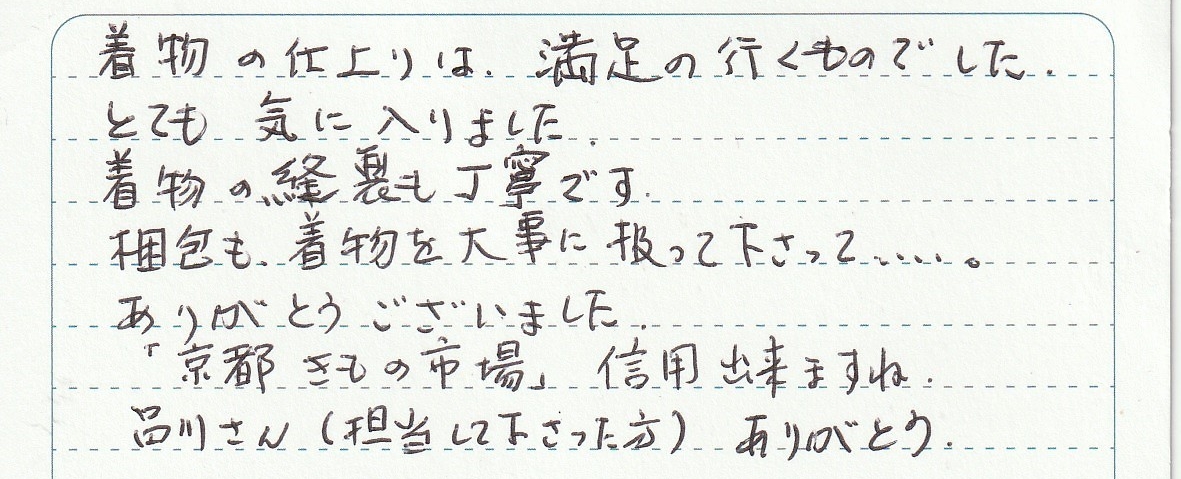 着物の仕上りは、満足の行くものでした.
とても 気に入りました.
着物の縫裏も丁寧です.
梱包も、着物を大事に扱って下さって.....。
ありがとうございました.
「京都きもの市場」 信用出来ますね.
品川さん (担当して下さった方) ありがとう.